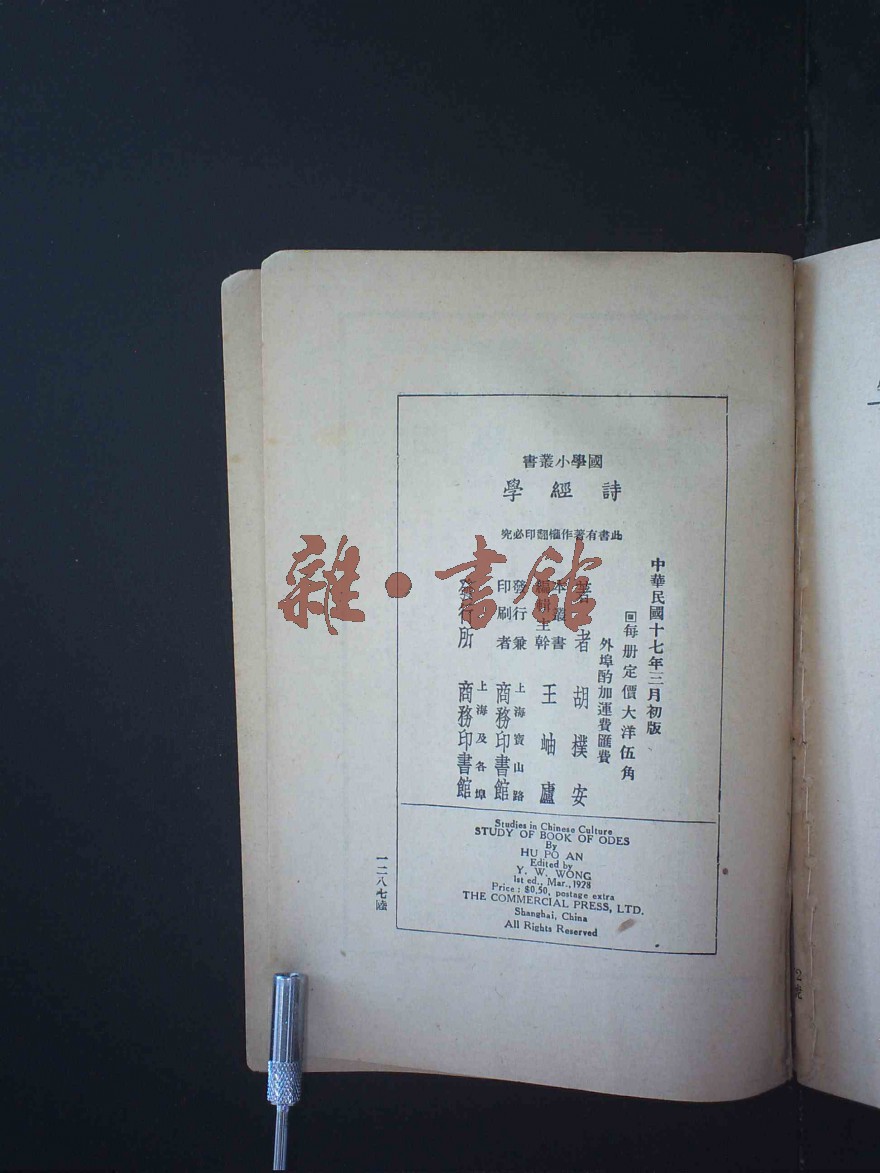 國學小叢書
詩經學
此書有著作權翻印必究
中華民國十七年三月初版
回每册定價大洋伍角
外埠酌加運費匯費
著者 胡樸安
本叢書編輯主幹 王岫廬
發行兼印刷者 上海寶山路 商務印書館
發行所 上海及各埠 商務印書館
Studies in Chinese Culture
STUDY OF BOOK OF ODES
By
HU PO AN
Edited by
Y. W. WONG
1st ed., Mar., 1928
Price : $0.50, postage extra
THE COMMERCIAL PRESS, LTD.
Shanghai, China
All Rights Reserved
一二八七陸
雜·書館